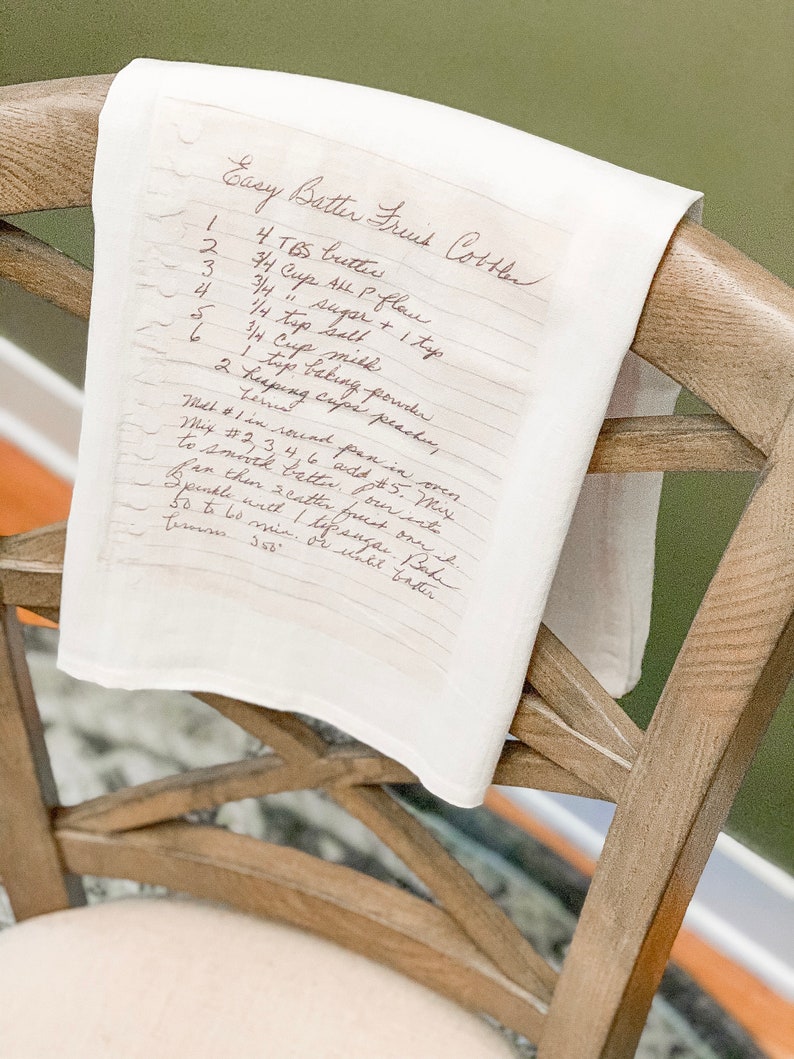 Easy Batter Fruit Cobbler
1 4 TBS butter
2 3/4 Cup All P flour
3 3/4 " sugar + 1 tsp
4 1/4 tsp salt
5 3/4 Cup milk
6 1 tsp baking powder
2 heaping cups peaches,
berries
Melt #1 in round pan in oven
Mix #2, 3, 4, 6 add #5. Mix
to smooth batter. Pour into
Pan then scatter fruit over it.
Sprinkle with 1 tsp sugar. Bake
50 to 60 min. or until batter
browns 350°